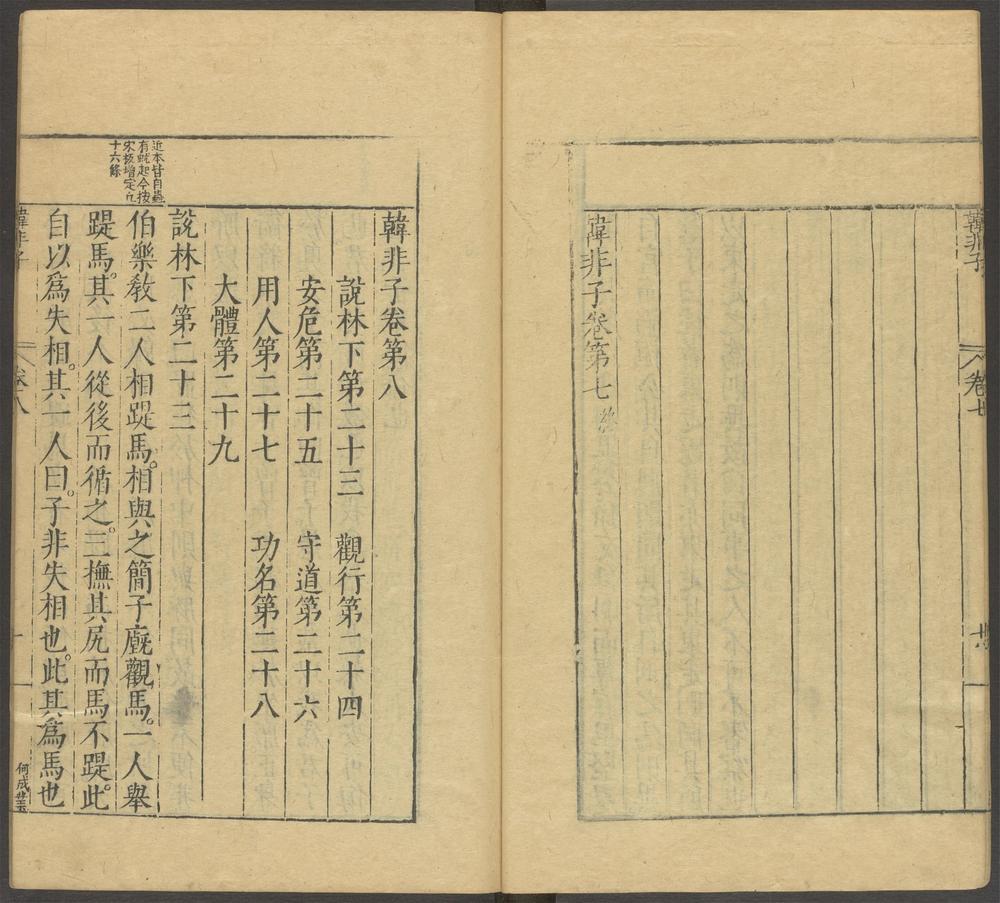 韓非子
卷七
韓非子卷第七終
韓非子卷第八
說林下第二十三 觀行第二十四
安危第二十五 守道第二十六
用人第二十七 功名第二十八
大體第二十九
說林下第二十三
近本皆自蟲
有蚘起今按
宋板增定凡
十六條
伯樂敎二人相踶馬。相與之簡子廐觀馬。一人舉
踶馬。其一人從後而循之。三撫其尻而馬不踶。此
自以爲失相。其一人曰。子非失相也。此其爲馬也
韓非子
卷八
一